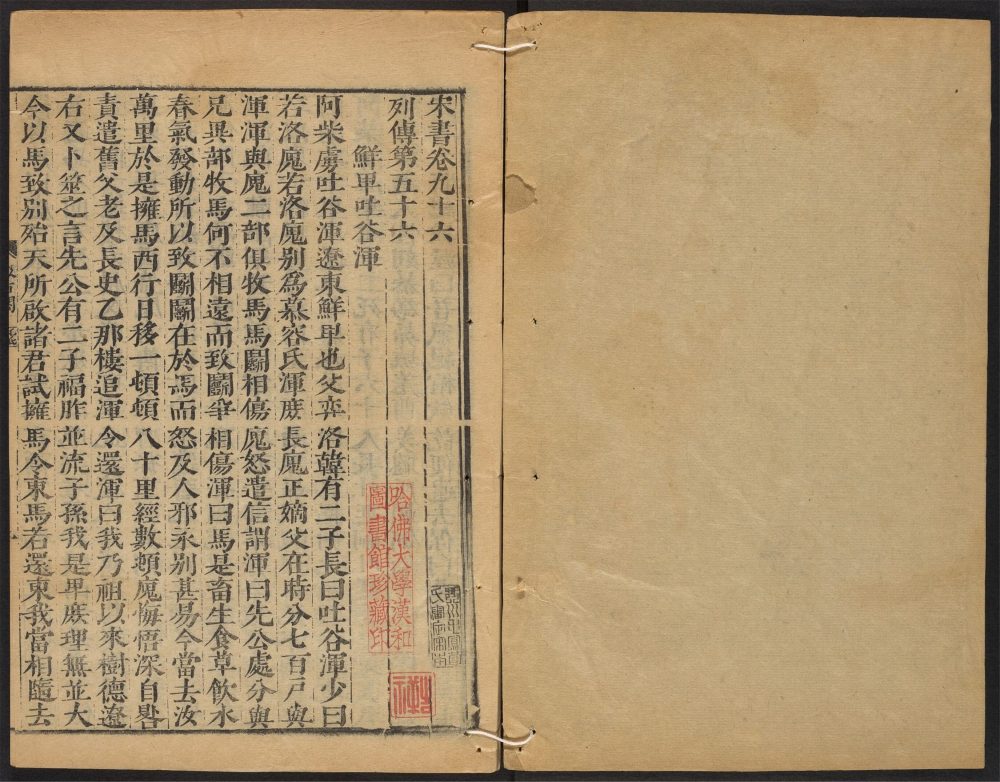 宋書卷九十六
列傳第五十六
鮮卑吐谷渾
阿柴虜吐谷渾遼東鮮卑也父弈洛韓有二子長曰吐谷渾少曰
若洛廆若洛廆別爲慕容氏渾庶長廆正嫡父在時分七百戶與
渾渾與廆二部俱牧馬馬鬬相傷廆怒遣信謂渾曰先公處分與
兄異部牧馬何不相遠而致鬬爭相傷渾曰馬是畜生食草飲水
春氣發動所以致鬬鬬在於馬而怒及人邪永別甚易今當去汝
萬里於是擁馬西行日移一頓頓八十里經數頓廆悔悟深自咎
責遣舊父老及長史乙那樓追渾令還渾曰我乃祖以來樹德遼
右又卜筮之言先公有二子福胙並流子孫我是卑庶理無並大
今以馬致別殆天所啟諸君試擁馬令東馬若還東我當相隨去
哈佛大學漢和
圖書館珍藏印